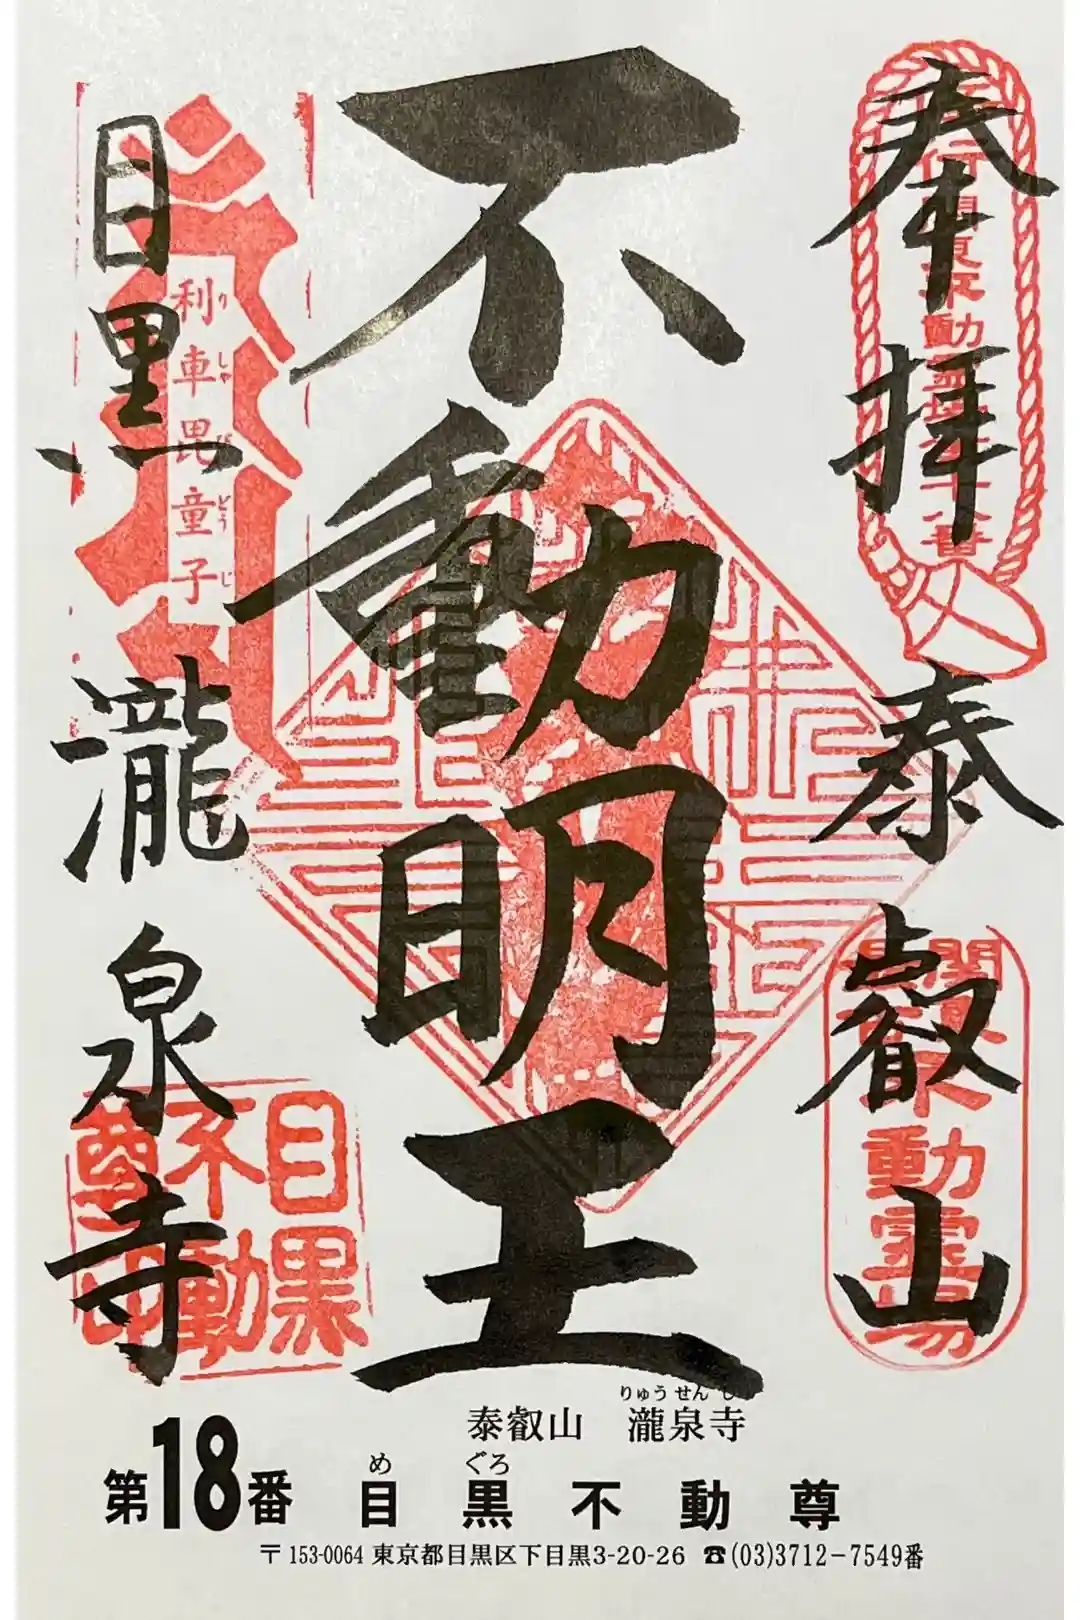 奉拝
泰叡山
不動明王
目黒
瀧泉寺
利車毘童子
りしゃびどうじ
関東
動霊場
目黒
不動
尊印
りゅうせんじ
泰叡山 瀧泉寺
めぐろ
第18番 目黒不動尊
〒153-0064 東京都目黒区下目黒3-20-26 ☎(03)3712-7549番